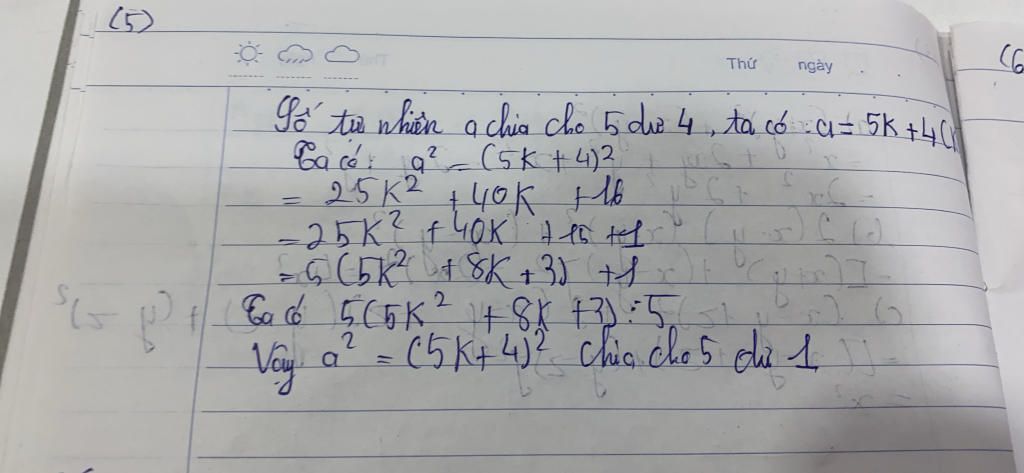 (5)
(6
Thứ ngày
Số tự nhiên a chia cho 5 dư 4, ta có: a = 5K + 4 (K
Ta có: a² = (5K + 4)²
= 25K² + 40K + 16
= 25K² + 40K + 15 + 1
= 5(5K² + 8K + 3) + 1
Ta có 5(5K² + 8K + 3) ⋮ 5
Vậy a² = (5K + 4)² chia cho 5 dư 1